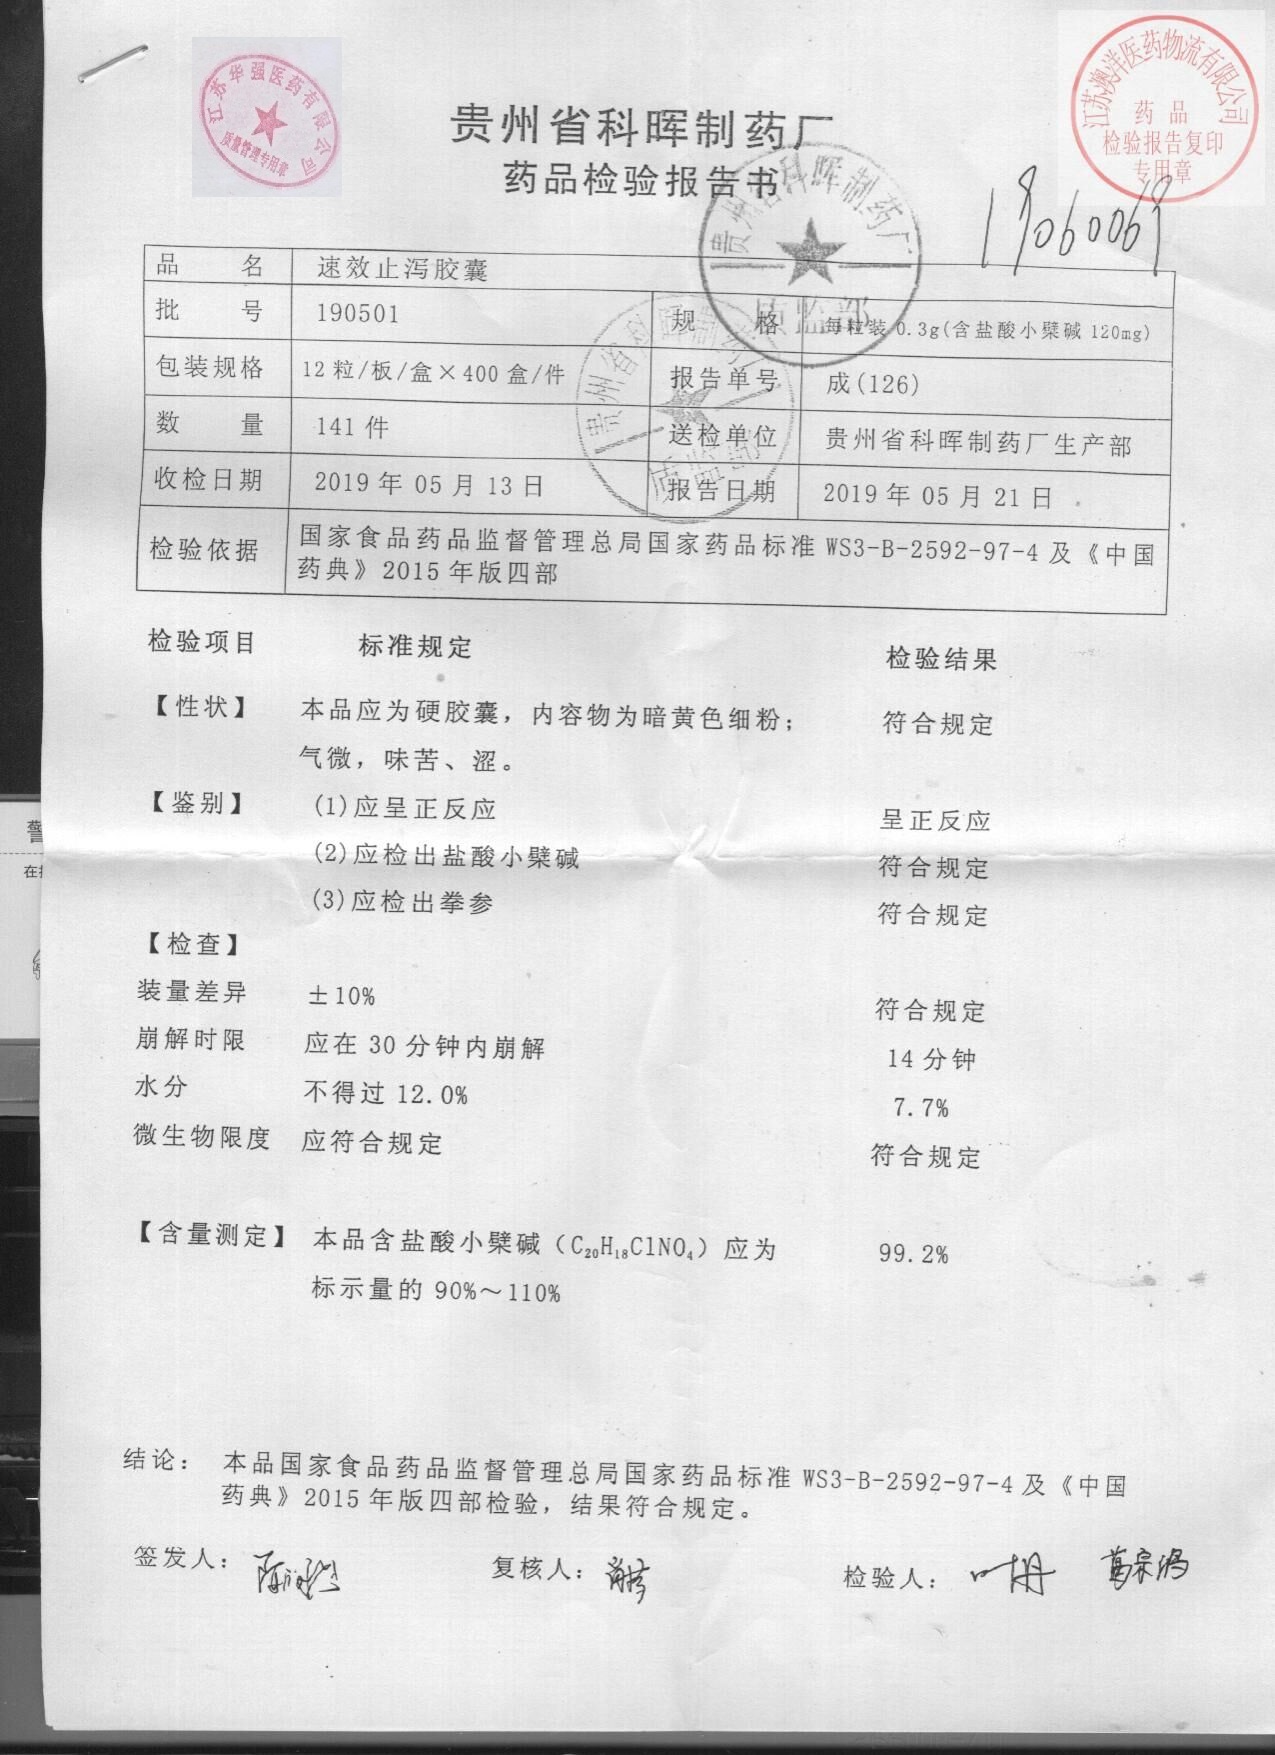 江苏华强医药有限公司
质量管理专用章
江苏澳洋医药物流有限公司
药品
检验报告复印
专用章
贵州省科晖制药厂
药品检验报告书
贵州省科晖制药厂
质监部
19060069
品 名 速效止泻胶囊
批 号 190501 规 格 每粒装 0.3g(含盐酸小檗碱 120mg)
包装规格 12 粒/板/盒×400 盒/件 报告单号 成(126)
数 量 141 件 送检单位 贵州省科晖制药厂生产部
收检日期 2019 年 05 月 13 日 报告日期 2019 年 05 月 21 日
检验依据 国家食品药品监督管理总局国家药品标准 WS3-B-2592-97-4 及《中国
药典》2015 年版四部
贵州省科晖制药厂
质监部
检验项目 标准规定 检验结果
【性状】 本品应为硬胶囊，内容物为暗黄色细粉； 符合规定
气微，味苦、涩。
【鉴别】 (1)应呈正反应 呈正反应
(2)应检出盐酸小檗碱 符合规定
(3)应检出拳参 符合规定
【检查】
装量差异 ±10% 符合规定
崩解时限 应在 30 分钟内崩解 14 分钟
水分 不得过 12.0% 7.7%
微生物限度 应符合规定 符合规定
【含量测定】 本品含盐酸小檗碱（C₂₀H₁₈ClNO₄）应为 99.2%
标示量的 90%～110%
结论： 本品国家食品药品监督管理总局国家药品标准 WS3-B-2592-97-4 及《中国
药典》2015 年版四部检验，结果符合规定。
签发人： 复核人： 检验人： 叶丹
警